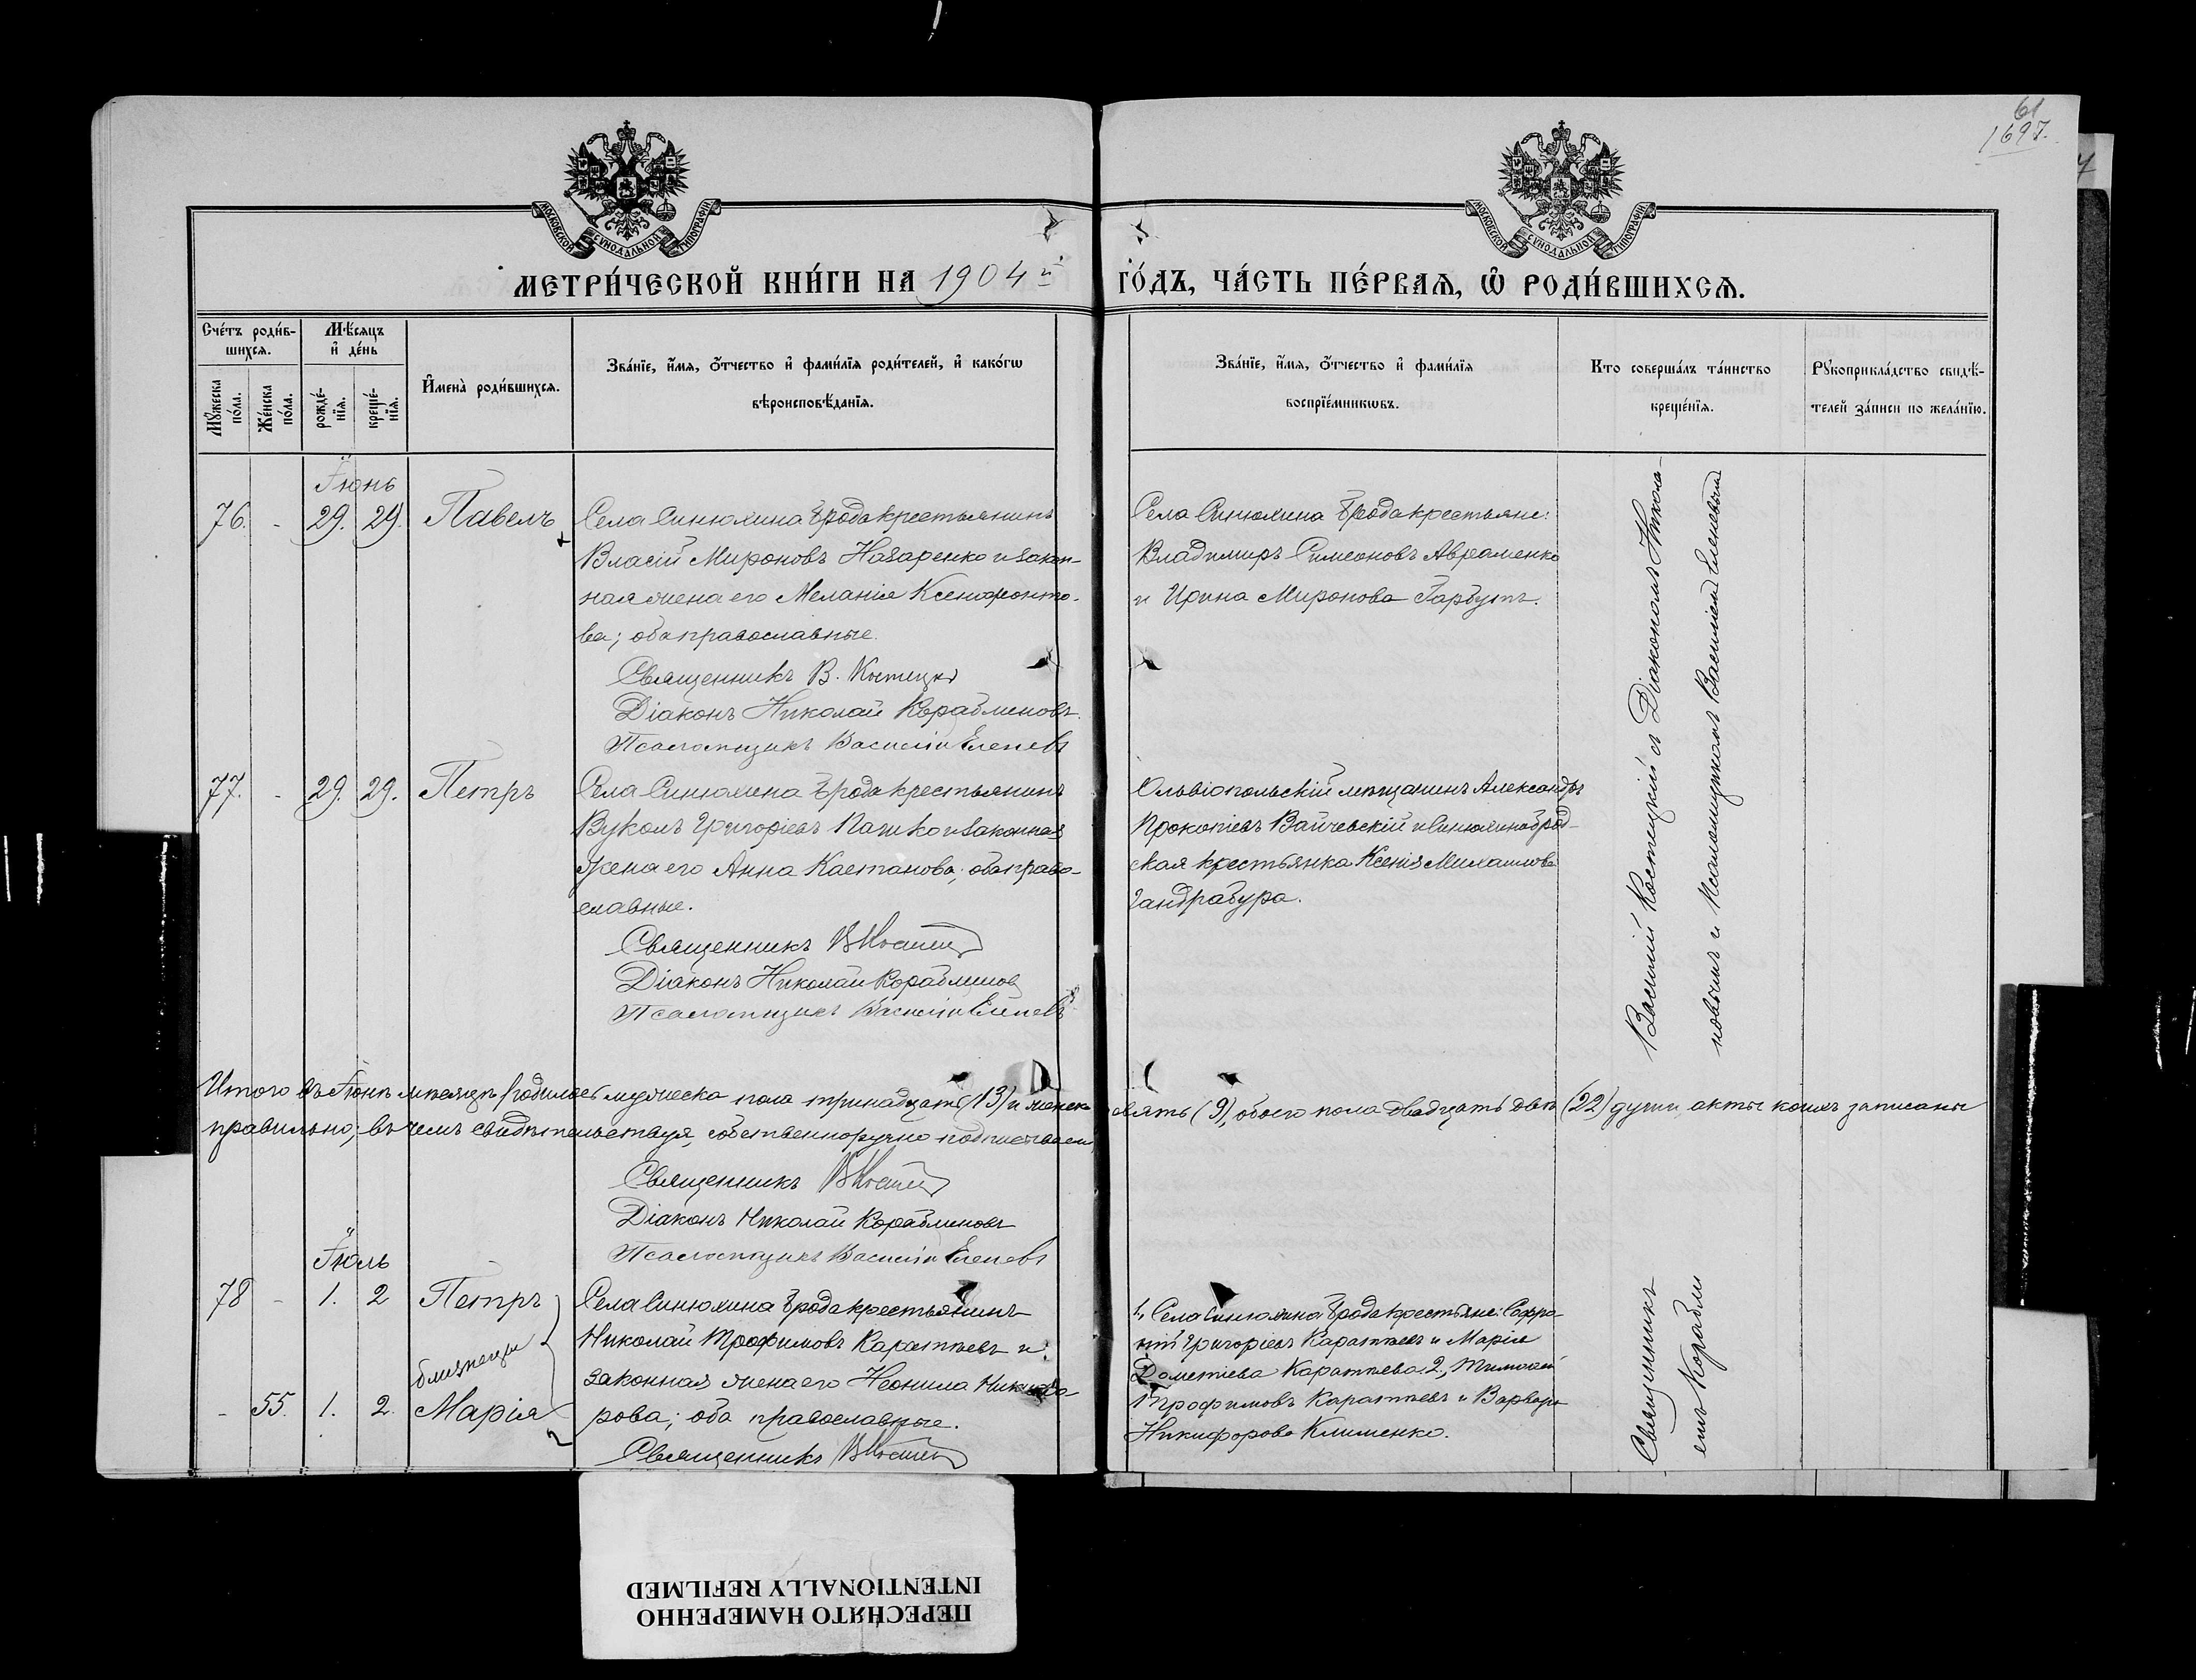 61
1697.
МОСКОВСКОЙ СѴНОДАЛЬНОЙ ТИПОГРАФІИ
МОСКОВСКОЙ СѴНОДАЛЬНОЙ ТИПОГРАФІИ
МЕТРИ́ЧЕСКОЙ КНИ́ГИ НА 1904й ГО́ДЪ, ЧА́СТЬ ПЕ́РВАѦ, Ѿ РОДИ́ВШИХСѦ.
Сче́тъ роди́в-
шихсѧ.
Мꙋ́жеска по́ла.
Же́нска по́ла.
Мѣ́сѧцъ
и҆ де́нь
рожде́-
нїѧ.
креще́-
нїѧ.
И҆мена̀ роди́вшихсѧ.
Зва́нїе, и҆́мѧ, ѻ҆́тчество и҆ фами́лїѧ роди́телей, и҆ како́гѡ
вѣроисповѣ́данїѧ.
Зва́нїе, и҆́мѧ, ѻ҆́тчество и҆ фами́лїѧ
воспрїе́мникѡвъ.
Кто соверша́лъ та́инство
креще́нїѧ.
Рꙋкоприкла́дство свидѣ́-
телей за́писи по жела́нїю.
Іюнь
76. - 29. 29. Павелъ
Села Синюхина Брода крестьянинъ
Власій Мироновъ Назаренко и закон-
ная жена его Меланія Ксенофонто-
ва; оба православные.
Священникъ В. Костецкі
Діаконъ Николай Кораблиновъ
Псаломщикъ Василій Еленевъ
Села Синюхина Брода крестьяне:
Владимиръ Симеоновъ Авраменко
и Ирина Миронова Гарбузъ.
Василій Костецкій съ Діакономъ Никола-
новымъ и Псаломщикомъ Василіемъ Еленевымъ
77. - 29. 29. Петръ
Села Синюхина Брода крестьянинъ
Вуколъ Григоріевъ Пашко и законная
жена его Анна Кастанова; оба право-
славные.
Священникъ В Костец
Діаконъ Николай Кораблинов
Псаломщикъ Василій Еленевъ
Ольвіопольскій мѣщанинъ Александръ
Прокопіевъ Вайчевскій и Синюхиноброд-
ская крестьянка Ксенія Михаилова
Гандрабура.
Итого въ Іюнѣ мѣсяцѣ родилось мужеска пола тринадцать (13) и женска девять (9), обоего пола двадцать двѣ (22) души, акты коихъ записаны
правильно; въ чемъ свидѣтельствуя, собственноручно подписываемъ
Священникъ В Костец
Діаконъ Николай Кораблиновъ
Псаломщикъ Василій Еленевъ
Іюль
78 - 1. 2 Петръ
близнецы
- 55. 1. 2. Марія
Села Синюхина Брода крестьянинъ
Николай Трофимовъ Каратѣевъ и
законная жена его Неонила Никифо-
рова; оба православные.
Священникъ В Костец
1, Села Синюхина Брода крестьяне: Софро-
ній Григоріевъ Каратѣевъ и Марія
Дометіева Каратѣева 2, Тимофей
Трофимовъ Каратѣевъ и Варвара
Никифорова Клименко.
Священникъ
емъ Корабли
ПЕРЕСНЯТО НАМЕРЕННО
INTENTIONALLY REFILMED